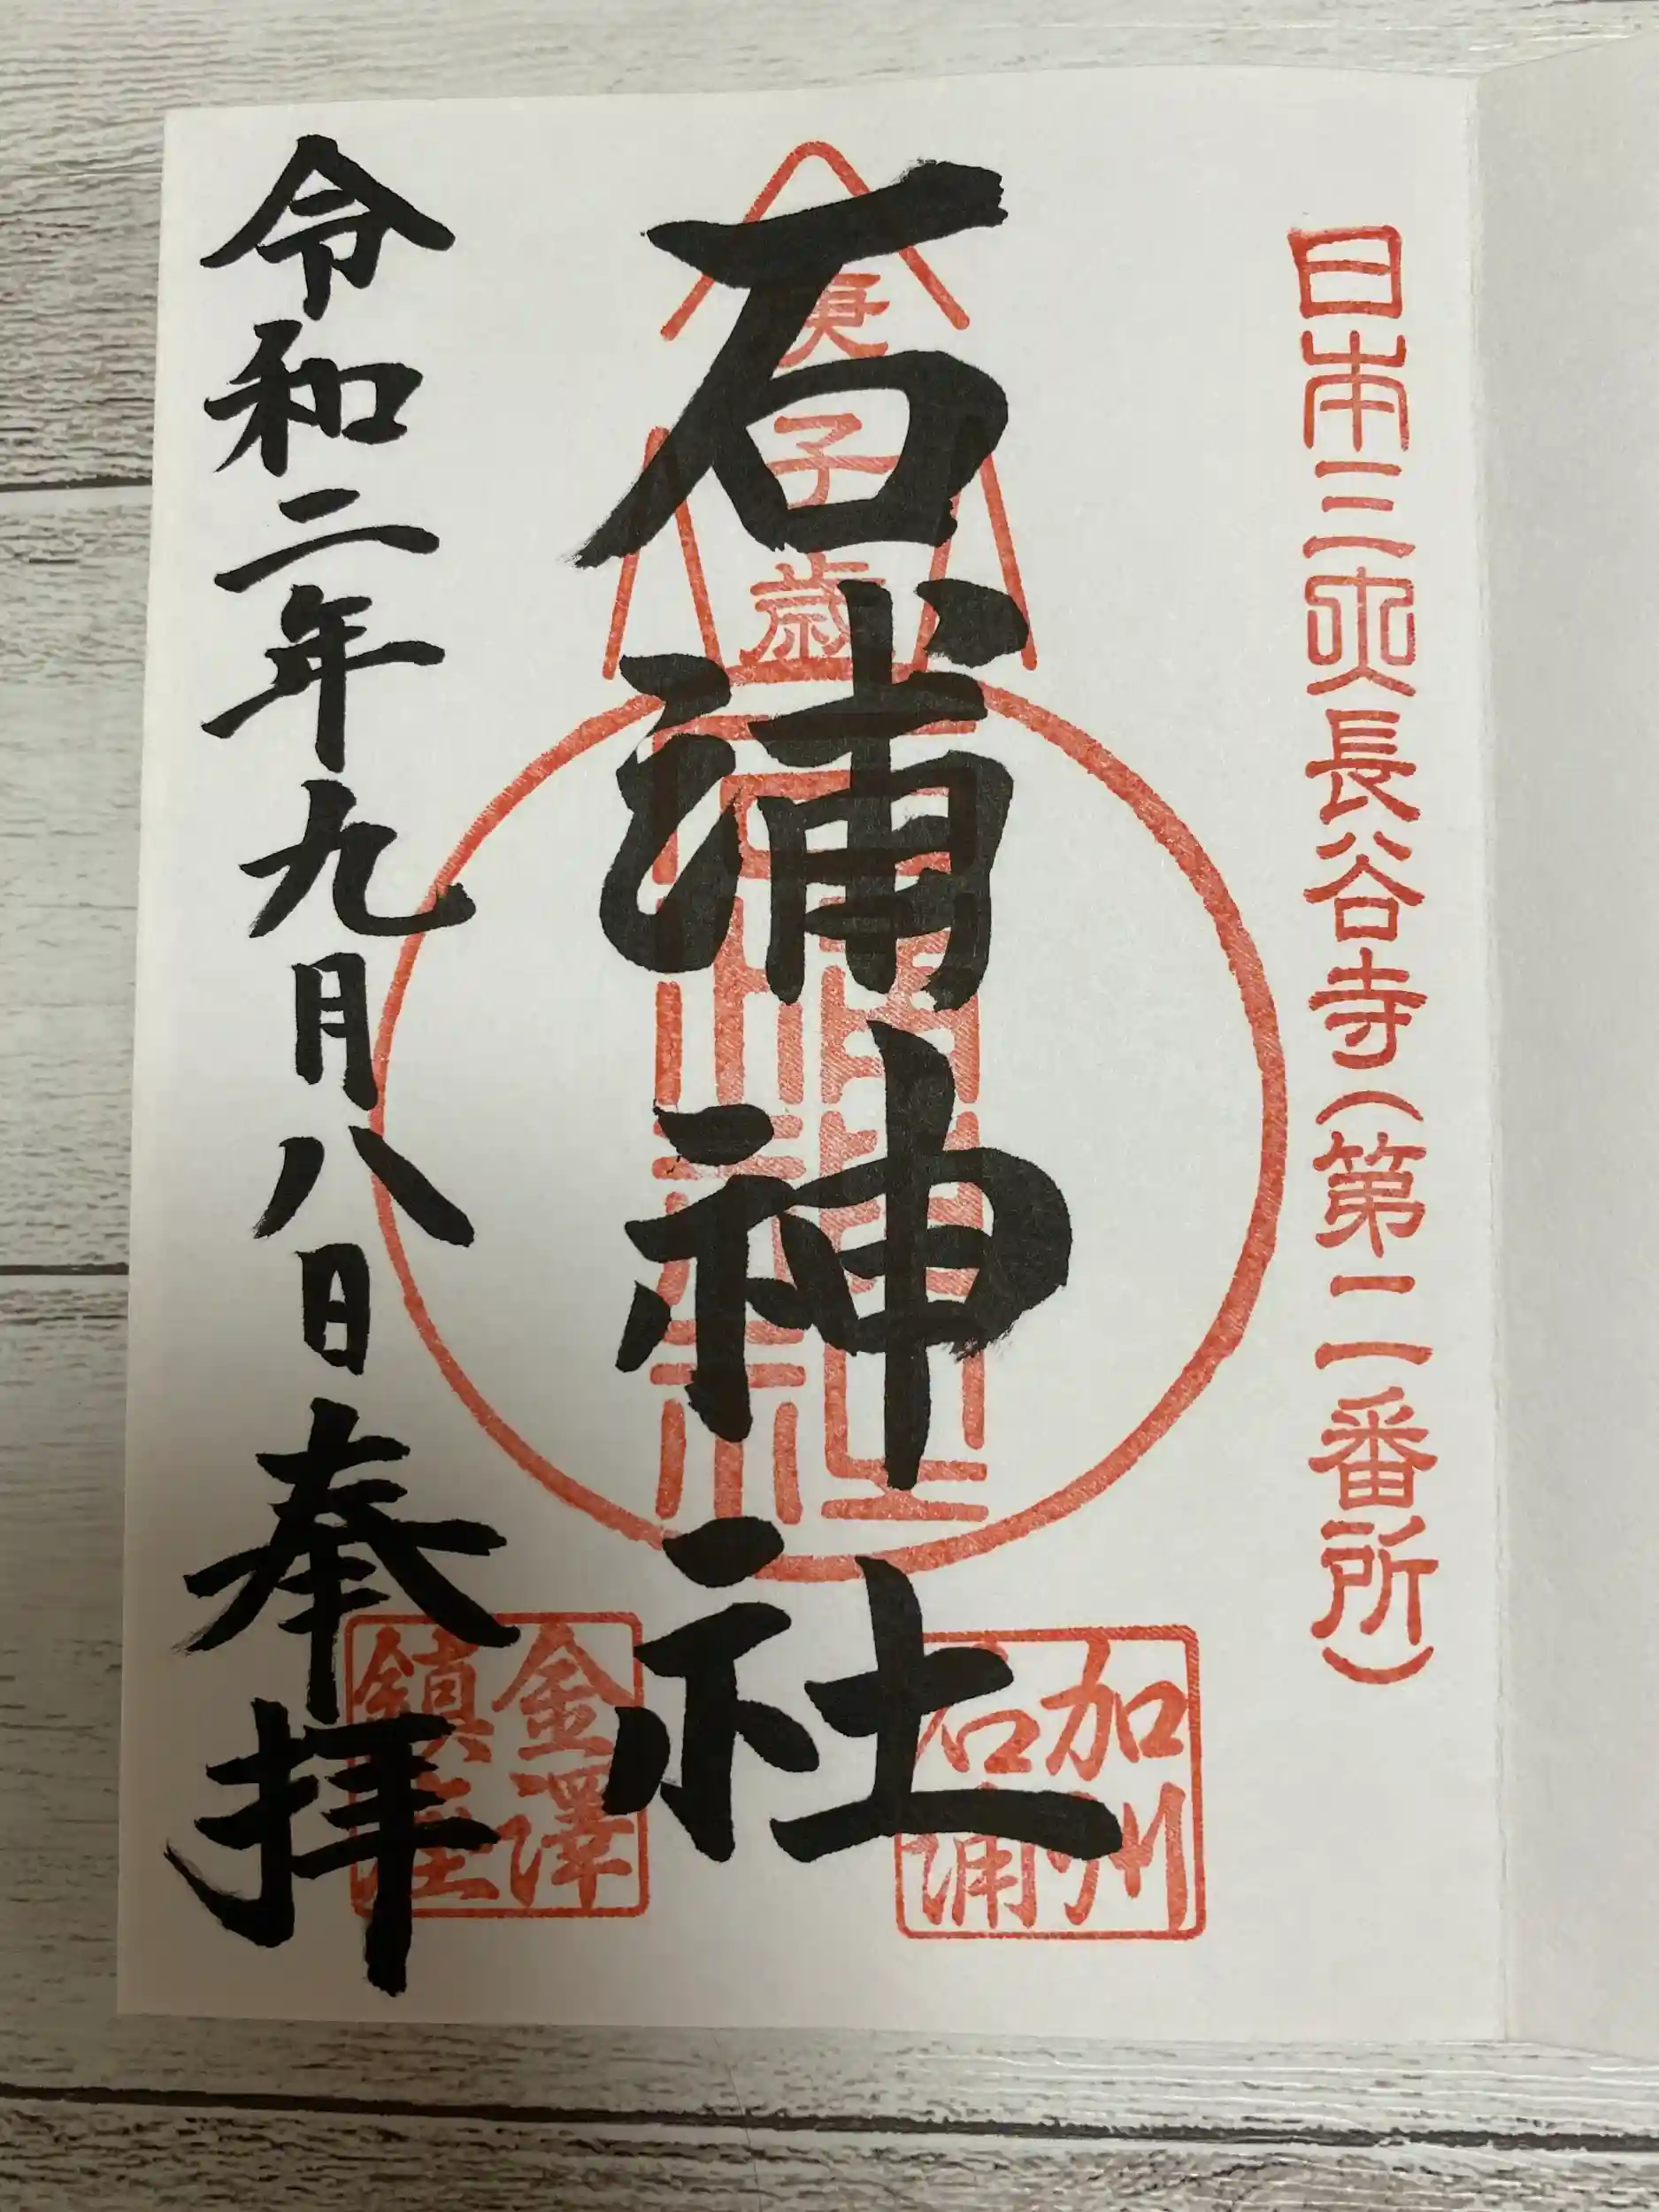 日本三所長谷寺(第二番所)
石浦神社
庚子歳
石浦神社
加州
石浦
金澤
鎮座
令和二年九月八日奉拝